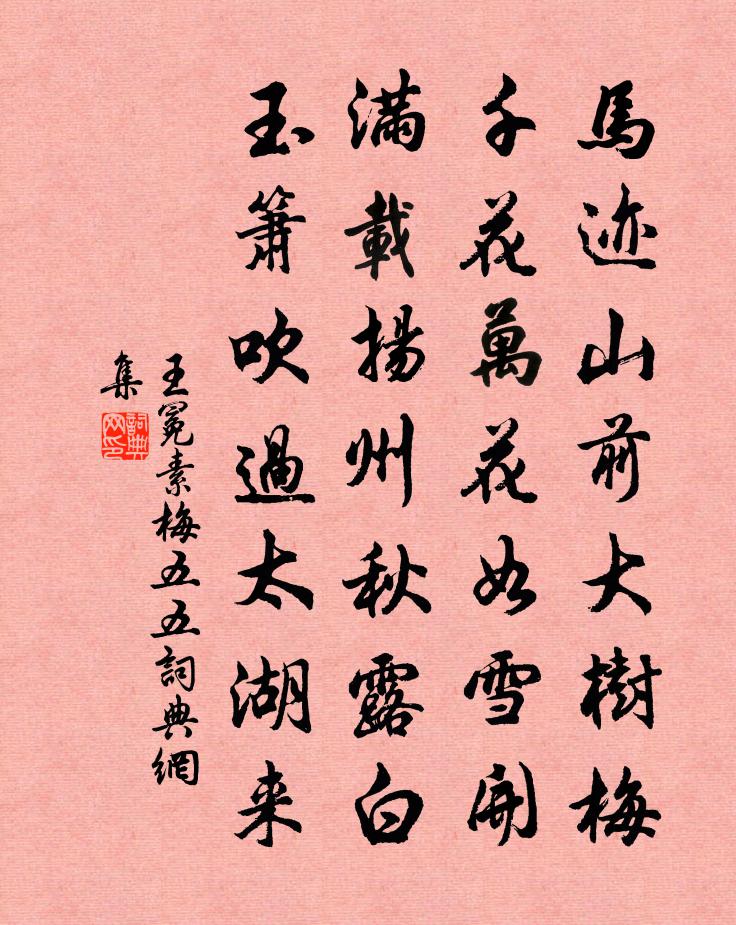 馬迹山前大樹梅
千花萬花如雪開
滿載揚州秋露白
玉簫吹過太湖来
王冕素梅五五詞典網
集
詞典
网印